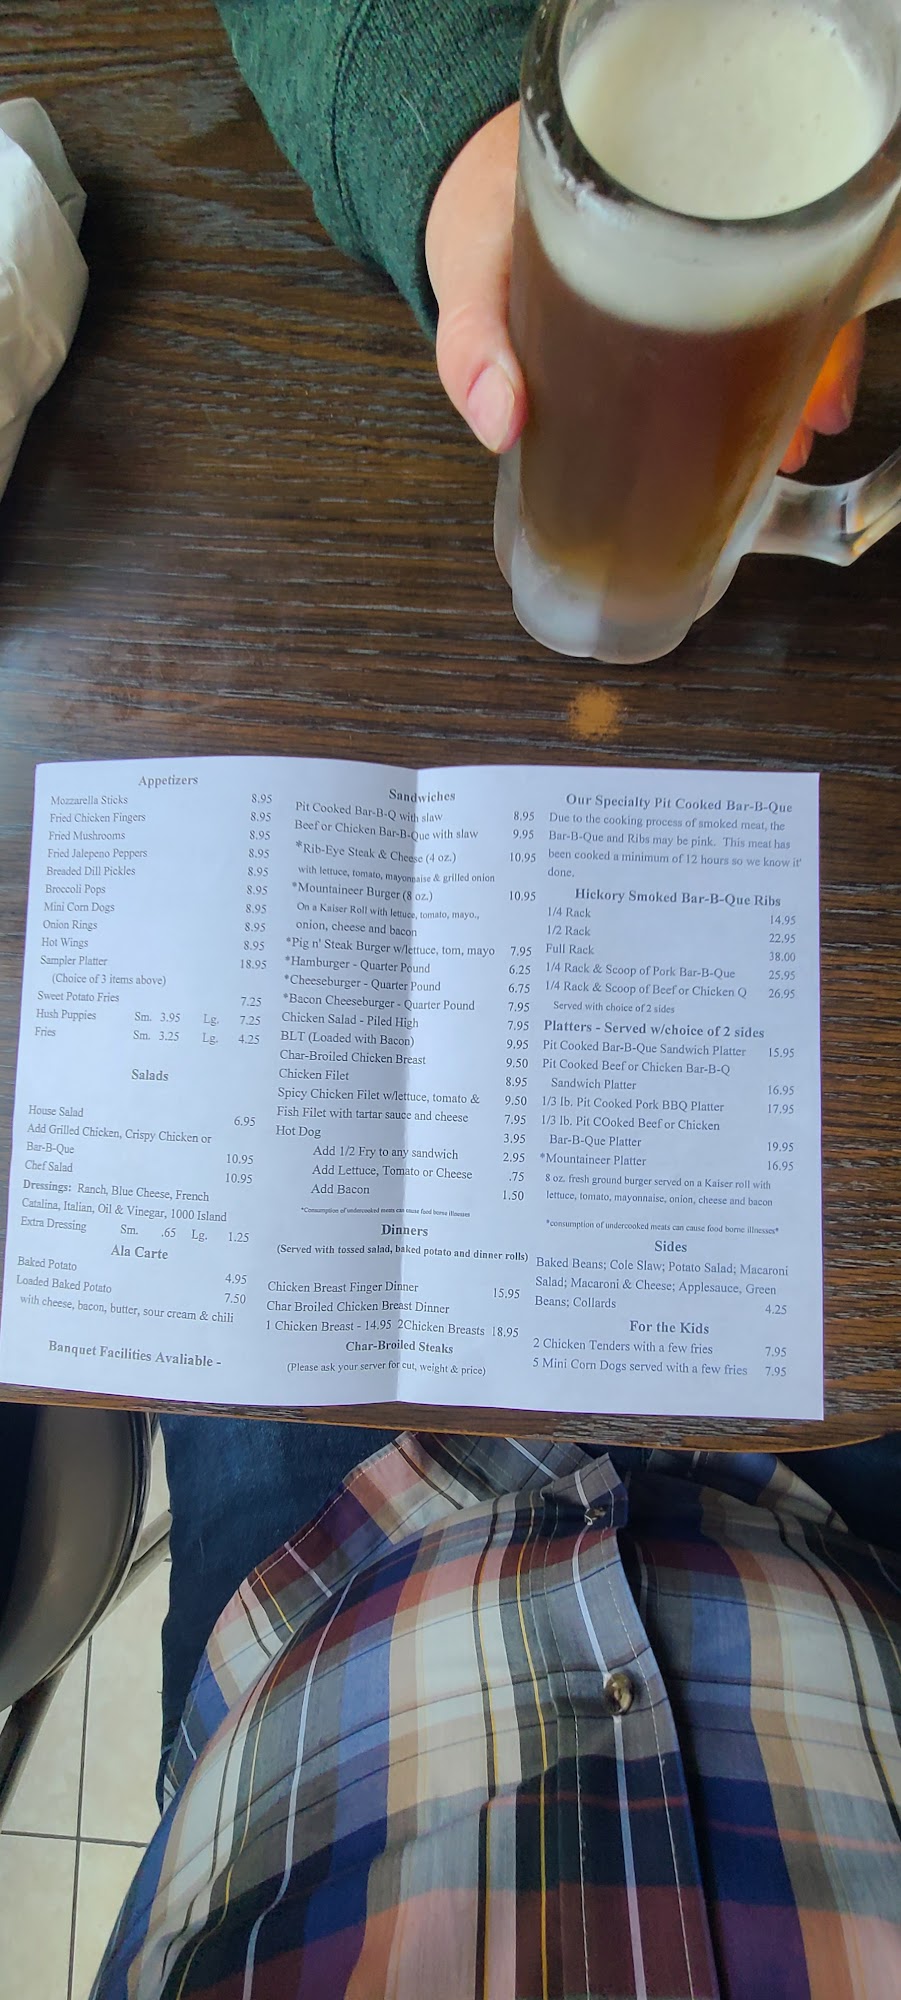 Appetizers
Mozzarella Sticks 8.95
Fried Chicken Fingers 8.95
Fried Mushrooms 8.95
Fried Jalepeno Peppers 8.95
Breaded Dill Pickles 8.95
Broccoli Pops 8.95
Mini Corn Dogs 8.95
Onion Rings 8.95
Hot Wings 8.95
Sampler Platter 18.95
(Choice of 3 items above)
Sweet Potato Fries 7.25
Hush Puppies Sm. 3.95 Lg. 7.25
Fries Sm. 3.25 Lg. 4.25
Salads
House Salad 6.95
Add Grilled Chicken, Crispy Chicken or
Bar-B-Que 10.95
Chef Salad 10.95
Dressings: Ranch, Blue Cheese, French
Catalina, Italian, Oil & Vinegar, 1000 Island
Extra Dressing Sm. .65 Lg. 1.25
Ala Carte
Baked Potato 4.95
Loaded Baked Potato 7.50
with cheese, bacon, butter, sour cream & chili
Banquet Facilities Avaliable -
Sandwiches
Pit Cooked Bar-B-Q with slaw 8.95
Beef or Chicken Bar-B-Que with slaw 9.95
*Rib-Eye Steak & Cheese (4 oz.) 10.95
with lettuce, tomato, mayonnaise & grilled onion
*Mountaineer Burger (8 oz.) 10.95
On a Kaiser Roll with lettuce, tomato, mayo.,
onion, cheese and bacon
*Pig n' Steak Burger w/lettuce, tom, mayo 7.95
*Hamburger - Quarter Pound 6.25
*Cheeseburger - Quarter Pound 6.75
*Bacon Cheeseburger - Quarter Pound 7.95
Chicken Salad - Piled High 7.95
BLT (Loaded with Bacon) 9.95
Char-Broiled Chicken Breast 9.50
Chicken Filet 8.95
Spicy Chicken Filet w/lettuce, tomato & 9.50
Fish Filet with tartar sauce and cheese 7.95
Hot Dog 3.95
Add 1/2 Fry to any sandwich 2.95
Add Lettuce, Tomato or Cheese .75
Add Bacon 1.50
*Consumption of undercooked meats can cause food borne illnesses
Dinners
(Served with tossed salad, baked potato and dinner rolls)
Chicken Breast Finger Dinner 15.95
Char Broiled Chicken Breast Dinner
1 Chicken Breast - 14.95 2Chicken Breasts 18.95
Char-Broiled Steaks
(Please ask your server for cut, weight & price)
Our Specialty Pit Cooked Bar-B-Que
Due to the cooking process of smoked meat, the
Bar-B-Que and Ribs may be pink. This meat has
been cooked a minimum of 12 hours so we know it'
done.
Hickory Smoked Bar-B-Que Ribs
1/4 Rack 14.95
1/2 Rack 22.95
Full Rack 38.00
1/4 Rack & Scoop of Pork Bar-B-Que 25.95
1/4 Rack & Scoop of Beef or Chicken Q 26.95
Served with choice of 2 sides
Platters - Served w/choice of 2 sides
Pit Cooked Bar-B-Que Sandwich Platter 15.95
Pit Cooked Beef or Chicken Bar-B-Q
Sandwich Platter 16.95
1/3 lb. Pit Cooked Pork BBQ Platter 17.95
1/3 lb. Pit COoked Beef or Chicken
Bar-B-Que Platter 19.95
*Mountaineer Platter 16.95
8 oz. fresh ground burger served on a Kaiser roll with
lettuce, tomato, mayonnaise, onion, cheese and bacon
*consumption of undercooked meats can cause food borne illnesses*
Sides
Baked Beans; Cole Slaw; Potato Salad; Macaroni
Salad; Macaroni & Cheese; Applesauce, Green
Beans; Collards 4.25
For the Kids
2 Chicken Tenders with a few fries 7.95
5 Mini Corn Dogs served with a few fries 7.95